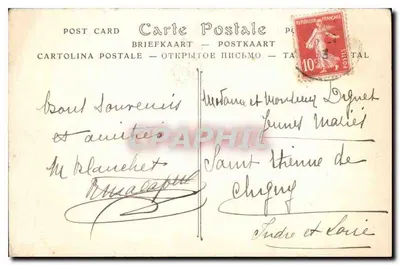 POST CARD Carte Postale
BRIEFKAART — POSTKAART
CARTOLINA POSTALE — ОТКРЫТОЕ ПИСЬМО —
RÉPUBLIQUE FRANÇAISE
10c
POSTES
Bons Souvenirs
et amitiés
M Blanchet
Madame et Monsieur Diguet
Jeunes Mariés
Saint Etienne de
Chigny
Indre et Loire
CPAPHIL